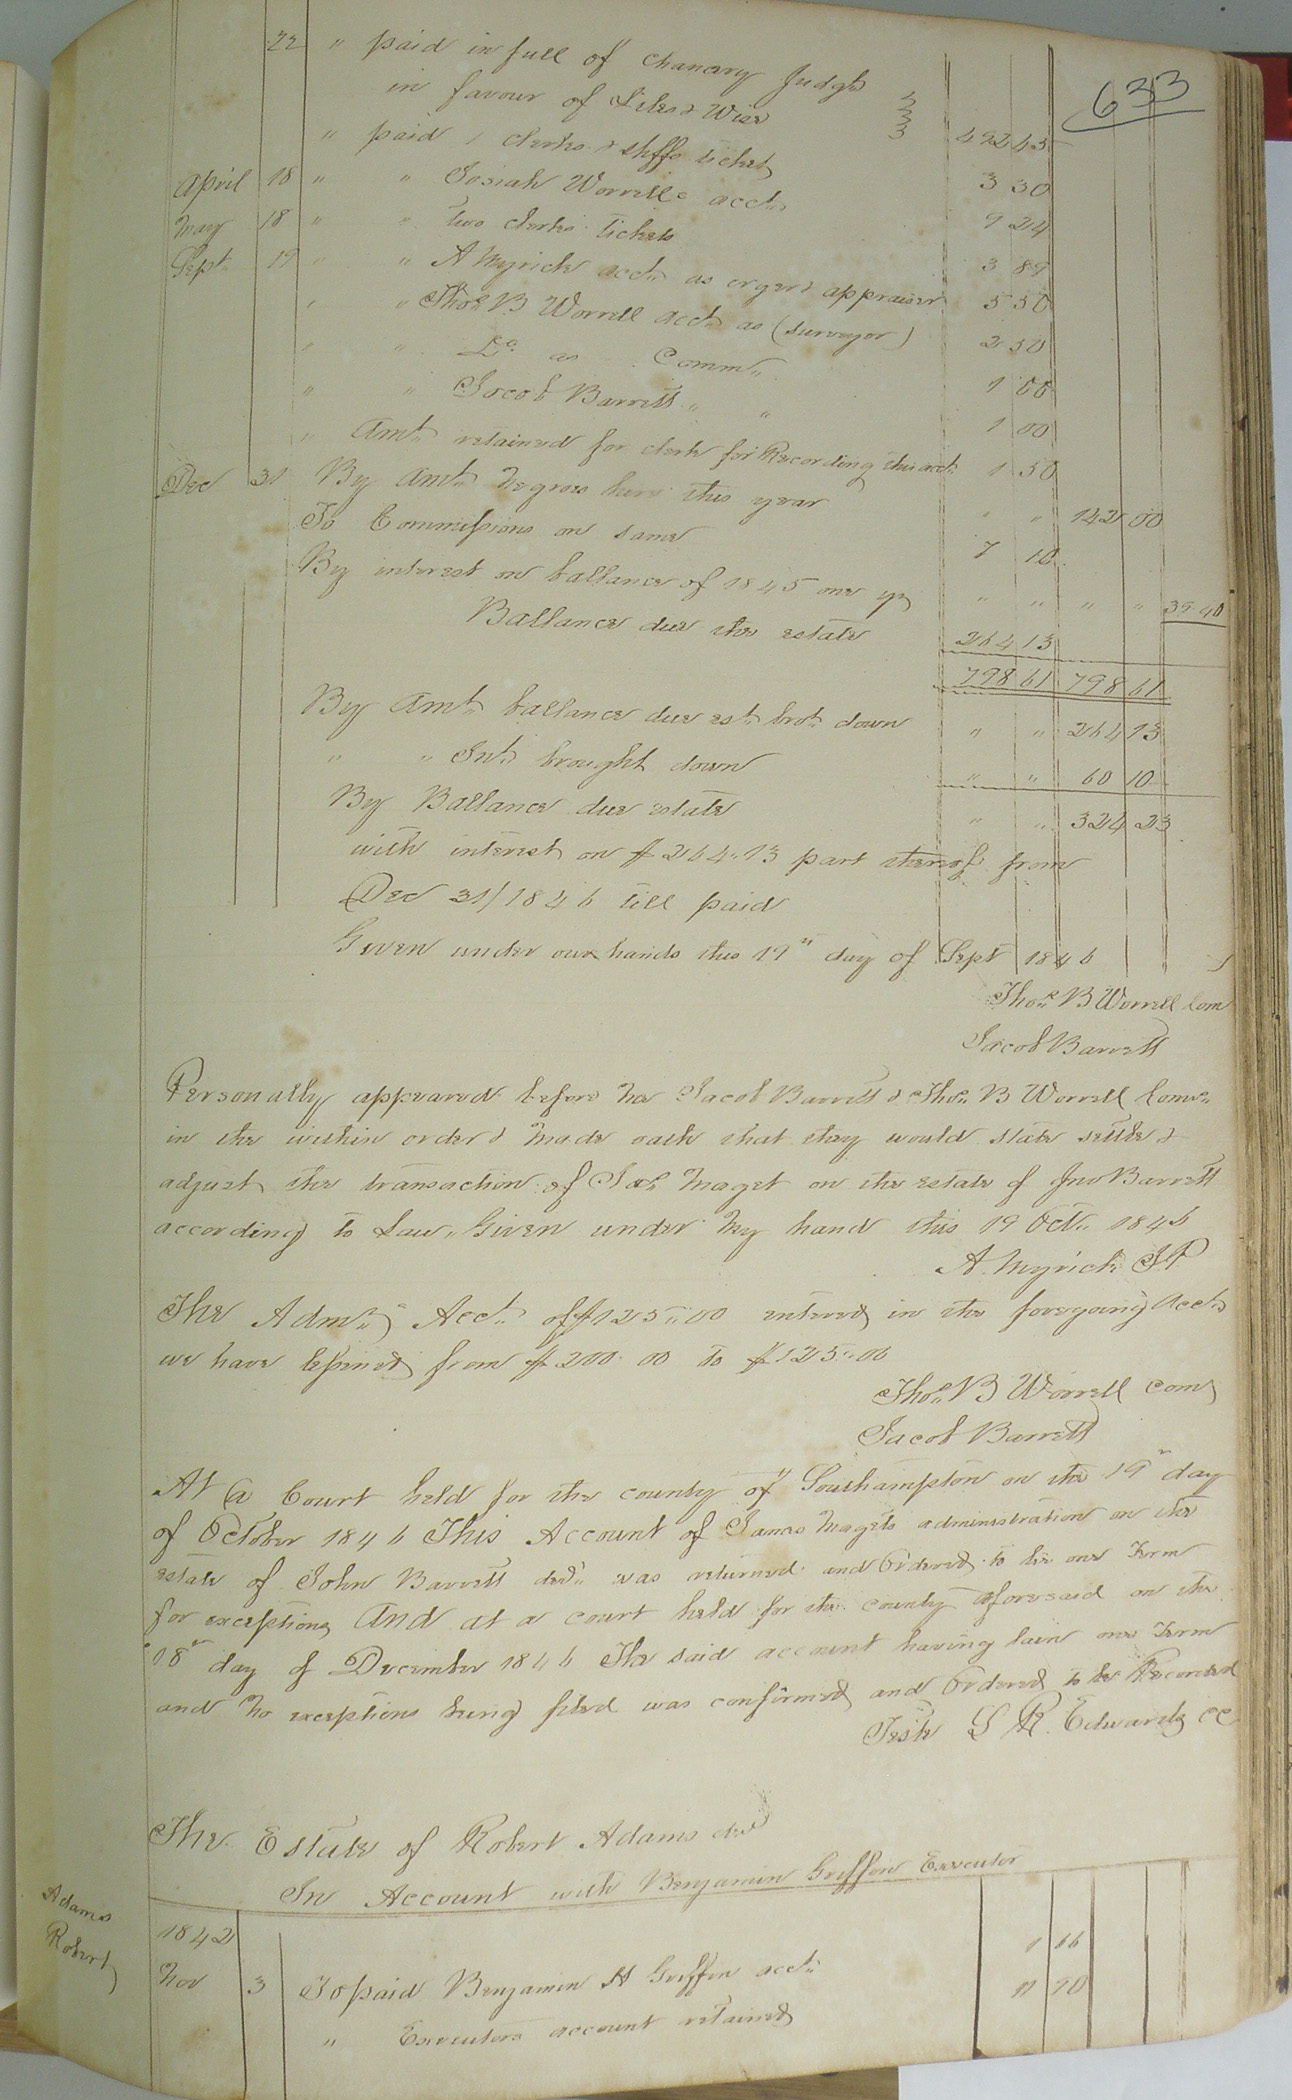 633
22 " paid in full of Chancery Judgt
in favour of Liles & Wise 492 43
" paid 1 clerks & shffs ticket 3 30
April 18 " " Josiah Worrells acct 9 24
May 18 " " two clerks tickets 3 89
Sept 19 " " A Myrick acct as cryer & appraiser 5 50
" " Thos B Worrell acct as (surveyor) 2 50
" " Do as Comm 1 00
" " Jacob Barrett " " 1 00
" Amt retained for clerk for Recording this acct 1 50
Dec 31 By Amt Negroes hire this year " " 142 00
To Commissions on same 7 10
By interest on ballance of 1845 one yr " " " " 39 40
Ballance due the estate 264 13
798 61 798 61
By Amt ballance due est brot down " " 264 13
" " Int brought down " " 60 10
By Ballance due estate " " 324 23
with interest on $264.13 part thereof from
Dec 31/1846 till paid
Given under our hands this 19th day of Sept 1846
Thos B Worrell Com
Jacob Barrett
Personally appeared before me Jacob Barrett & Thos B Worrell Coms
in the within order & made oath that they would state settle &
adjust the transaction of Jas Maget on the estate of Jno Barrett
according to Law. Given under my hand this 19 Oct. 1846
A. Myrick JP
The Admr Acct of $125.00 entered in the foregoing Acct
we have lessened from $200.00 to $125.00
Thos B Worrell Com
Jacob Barrett
At a Court held for the county of Southampton on the 19th day
of October 1846 This Account of James Magets administration on the
estate of John Barrett decd was returned and Ordered to lie one Term
for exceptions And at a court held for the county aforesaid on the
18th day of December 1846 The said account having lain one Term
and no exceptions being filed was confirmed and Ordered to be Recorded
Teste L R. Edwards CC
The Estate of Robert Adams decd
In Account with Benjamin Griffin Executor
Adams
Robert
1842
Nov 3 To paid Benjamin H Griffin acct 1 16
" Executors account retained 11 90